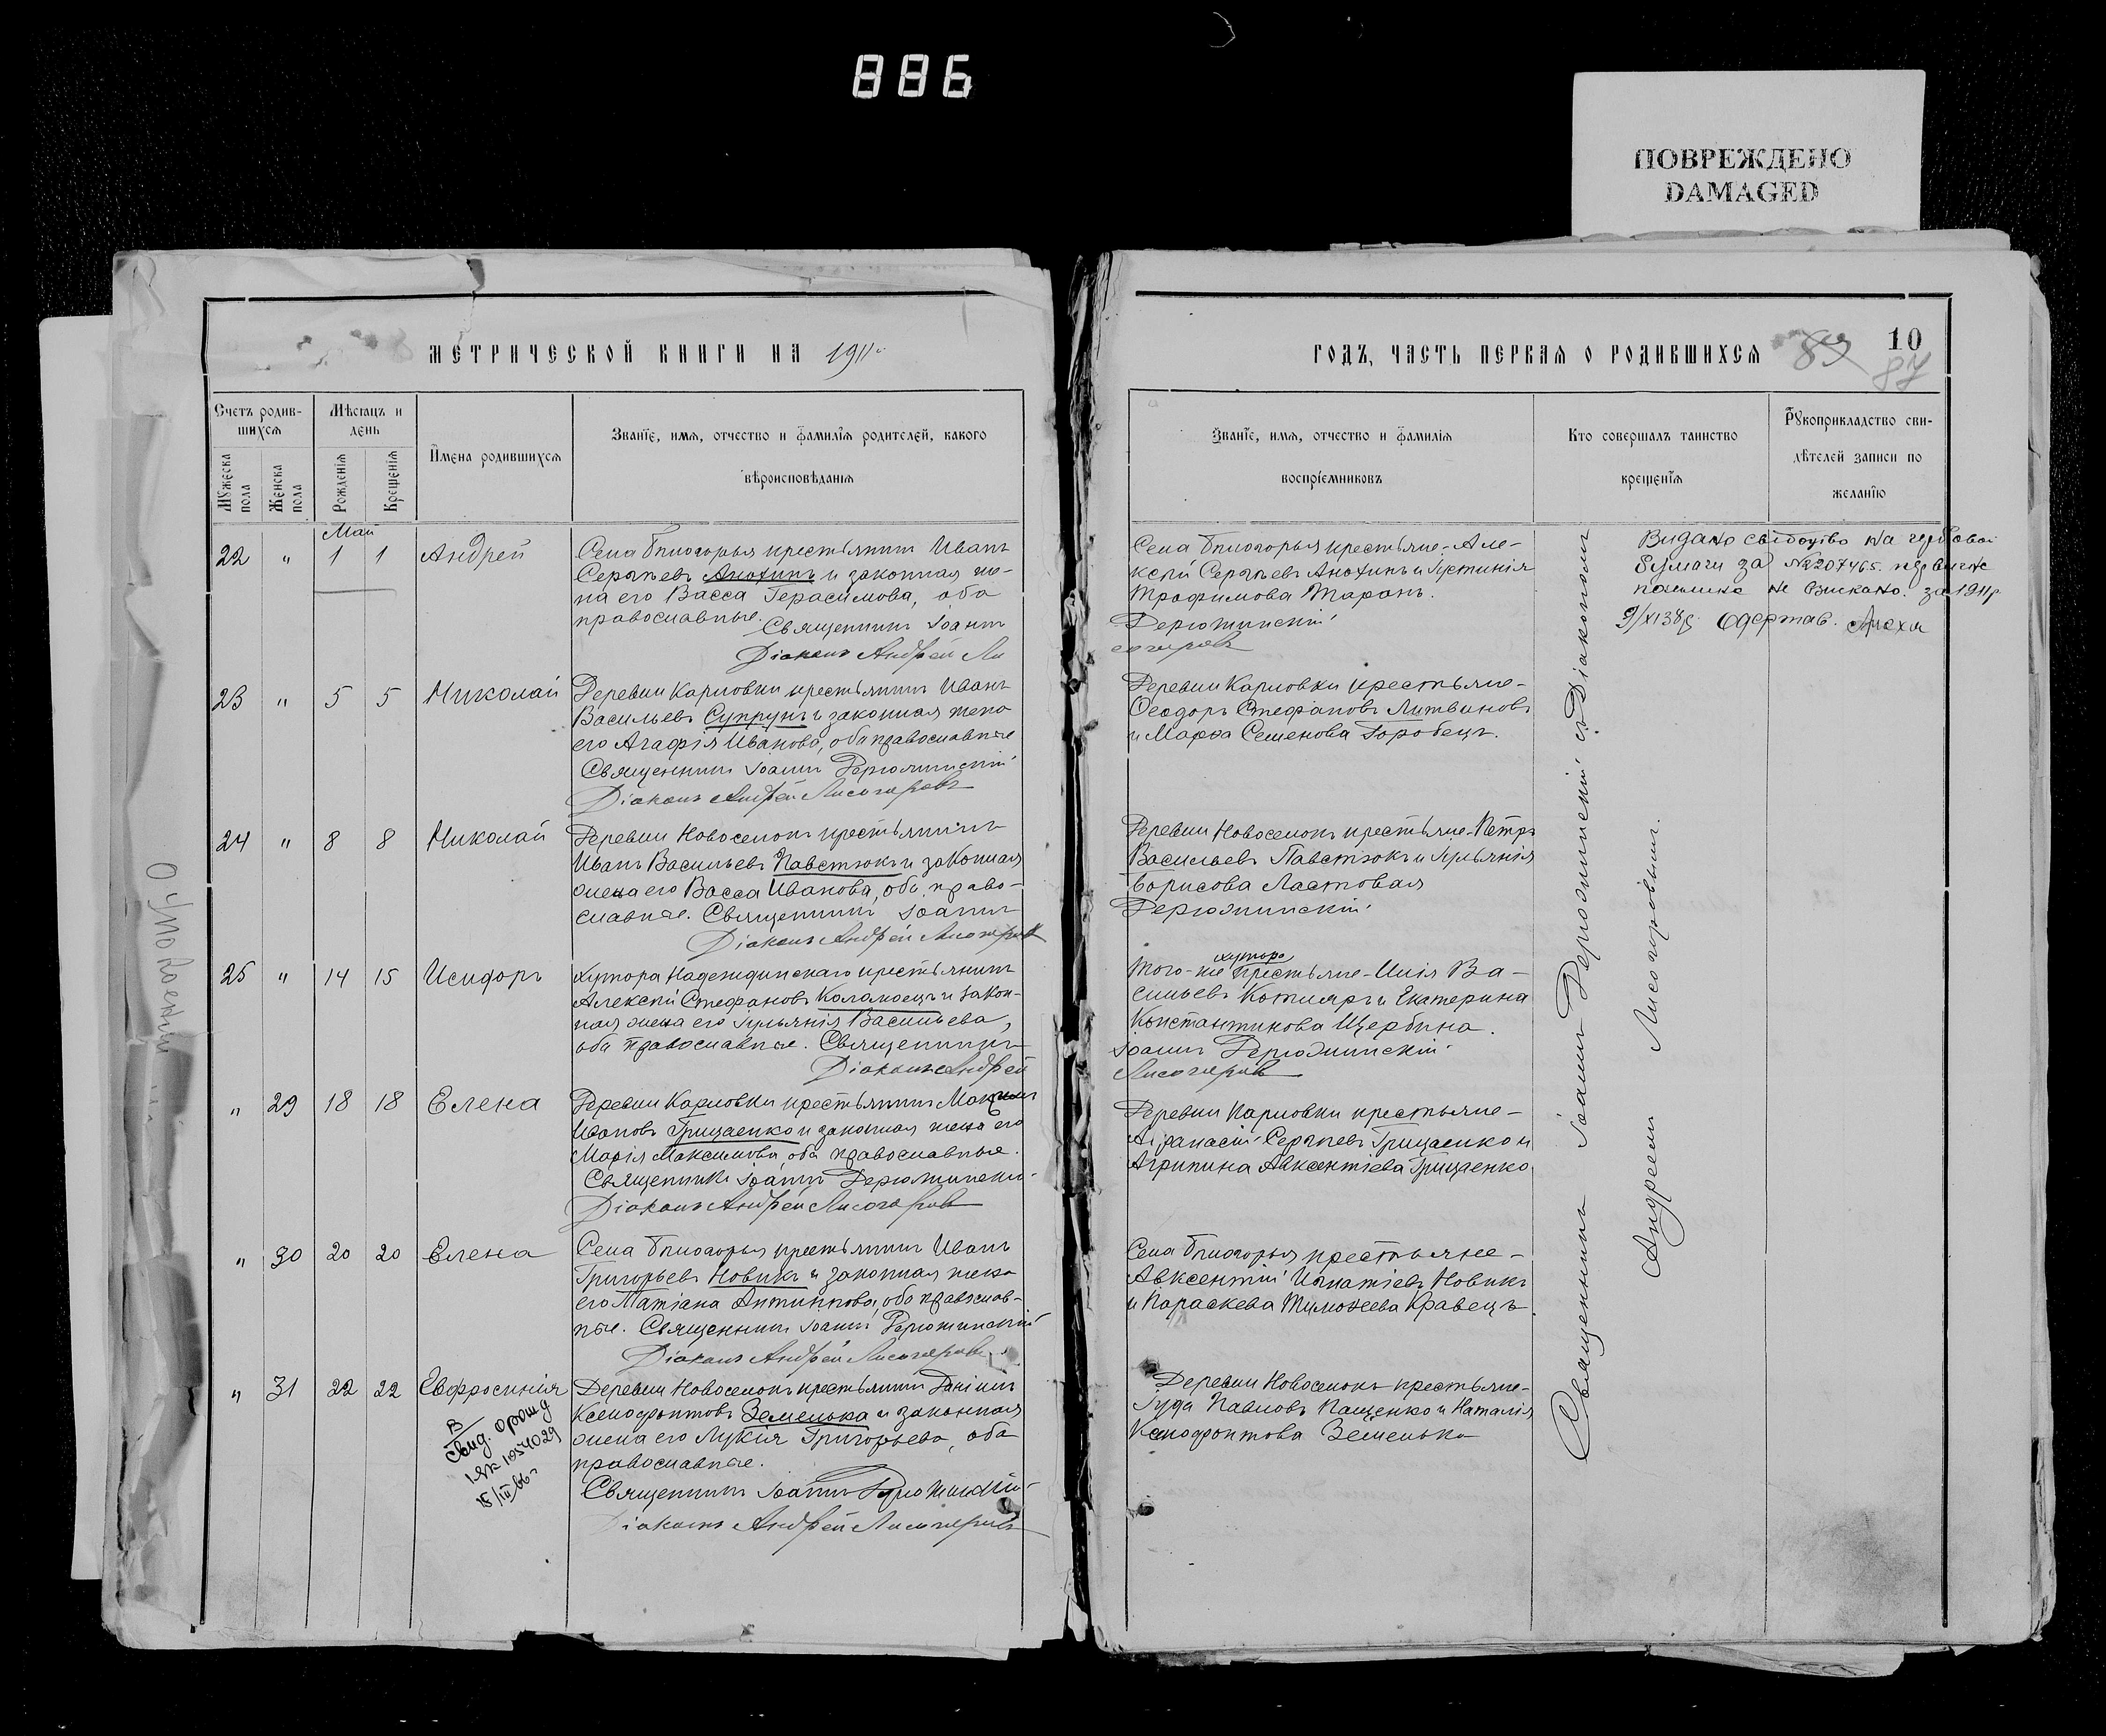 886
ПОВРЕЖДЕНО
DAMAGED
МЕТРИЧЕСКОЙ КНИГИ НА 1911
Счетъ родив-
шихся
Мѣсяцъ и
день
Имена родившихся
Званіе, имя, отчество и фамилія родителей, какого
вѣроисповѣданія
Мужеска
пола
Женска
пола
Рожденія
Крещенія
Май
22 " 1 1 Андрей
Села Благогорья крестьянинъ Иванъ
Сергѣевъ Анохинъ и законная же-
на его Васса Герасимова, оба
православные. Священникъ Іоаннъ
Діаконъ Андрей Ли
23 " 5 5 Николай
Деревни Карловки крестьянинъ Иванъ
Васильевъ Супрунъ и законная жена
его Агафія Иванова, оба православные
Священникъ Іоаннъ Дерюжинскій
Діаконъ Андрей Лисогоровъ
24 " 8 8 Николай
Деревни Новоселокъ крестьянинъ
Иванъ Васильевъ Павстюкъ и законная
жена его Васса Иванова, оба право-
славные. Священникъ Іоаннъ
Діаконъ Андрей Лисогоровъ
25 " 14 15 Исидоръ
Хутора Надеждинскаго крестьянинъ
Алексѣй Стефановъ Коламоецъ и закон-
ная жена его Іульянія Васильева,
оба православные. Священникъ
Діаконъ Андрей
" 29 18 18 Елена
Деревни Карловки крестьянинъ
Ивановъ Грицаенко и законная жена его
Марія Максимова, оба православные.
Священникъ Іоаннъ Дерюжинскій
Діаконъ Андрей Лисогоровъ
" 30 20 20 Елена
Села Благогорья крестьянинъ Иванъ
Григорьевъ Новикъ и законная жена
его Татіана Антиппова, оба православ-
ные. Священникъ Іоаннъ Дерюжинскій
Діаконъ Андрей Лисогоровъ
" 31 22 22 Евфросинія
Деревни Новоселокъ крестьянинъ Даніилъ
Ксенофонтовъ Земелька и законная
жена его Лукія Григорьева, оба
православные.
Священникъ Іоаннъ Дерюжинскій
Діаконъ Андрей Лисогоровъ
В
свид. о рожд
1054029
15/III 66г
ГОДЪ, ЧАСТЬ ПЕРВАЯ О РОДИВШИХСЯ
89
10
87
Званіе, имя, отчество и фамилія
воспріемниковъ
Кто совершалъ таинство
крещенія
Рукоприкладство сви-
дѣтелей записи по
желанію
Села Благогорья крестьяне-Але-
ксѣй Сергѣевъ Анохинъ и Іустинія
Трофимова Таранъ.
Дерюжинскій
согоровъ
Деревни Карловки крестьяне-
Ѳеодоръ Стефановъ Литвиновъ
и Марѳа Семенова Горобецъ.
Деревни Новоселокъ крестьяне-Петръ
Васильевъ Павстюкъ и Іульянія
Борисова Ластовая
Дерюжинскій
хутора
Того-же крестьяне-Илія Ва-
сильевъ Котляръ и Екатерина
Константинова Щербина.
Іоаннъ Дерюжинскій
Лисогоровъ
Деревни Карловки крестьяне-
Аѳанасій Сергѣевъ Грицаенко и
Агрипина Авксентіева Грицаенко
Села Благогорья крестьяне-
Авксентій Игнатіевъ Новикъ
и Параскева Тимоѳеева Кравецъ.
Деревни Новоселокъ крестьяне-
Іуда Павловъ Пащенко и Наталія
Ксенофонтова Земелька
Священникъ Іоаннъ Дерюжинскій съ Діакономъ
Андреемъ Лисогоровымъ.
Видано свідоцтво на гербовой
бумаги за №207465.
не взискано. за 1911р
9/XI 38р. Одержав.